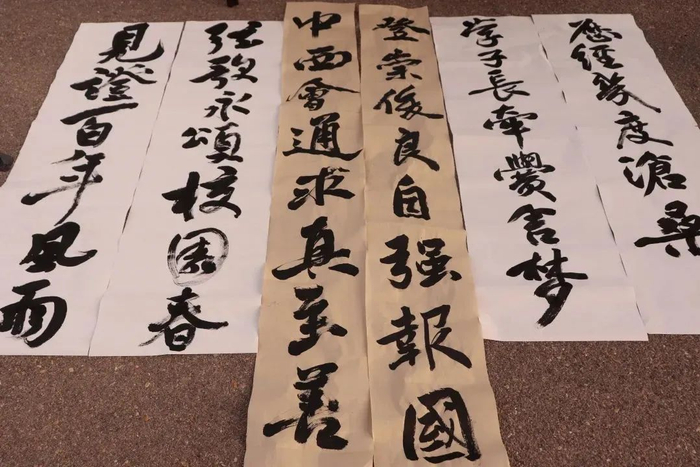 歷經幾度滄桑
学子長牽黌舍梦
登崇俊良自强報國
中西會通求真至善
弦歌永頌校園春
見證一百年風雨